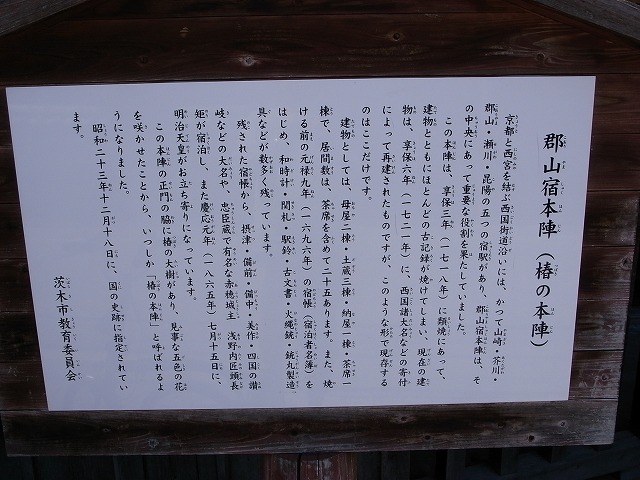 郡山宿本陣(椿の本陣)
京都と西宮を結ぶ西国街道沿いには、かつて山崎・芥川・
郡山・瀬川・昆陽の五つの宿駅があり、郡山宿本陣は、そ
の中央にあって重要な役割を果たしていました。
この本陣は、享保三年(一七一八年)に類焼にあって、
建物とともにほとんどの古記録が焼けてしまい、現在の建
物は、享保六年(一七二一年)に、西国諸大名などの寄付
によって再建されたものですが、このような形で現存する
のはここだけです。
建物としては、母屋二棟・土蔵三棟・納屋一棟・茶席一
棟で、居間数は、茶席を含めて二十五あります。また、焼
ける前の元禄九年(一六九六年)の宿帳(宿泊者名簿)を
はじめ、和時計・関札・駅鈴・古文書・火縄銃・銃丸製造
具などが数多く残っています。
残された宿帳から、摂津・備前・備中・美作・四国の讃
岐などの大名や、忠臣蔵で有名な赤穂城主 浅野内匠頭長
矩が宿泊し、また慶応元年(一八六五年)七月十五日に、
明治天皇がお立ち寄りになっています。
この本陣の正門の脇に椿の大樹があり、見事な五色の花
を咲かせたことから、いつしか「椿の本陣」と呼ばれるよ
うになりました。
昭和二十三年十二月十八日に、国の史跡に指定されてい
ます。
茨木市教育委員会